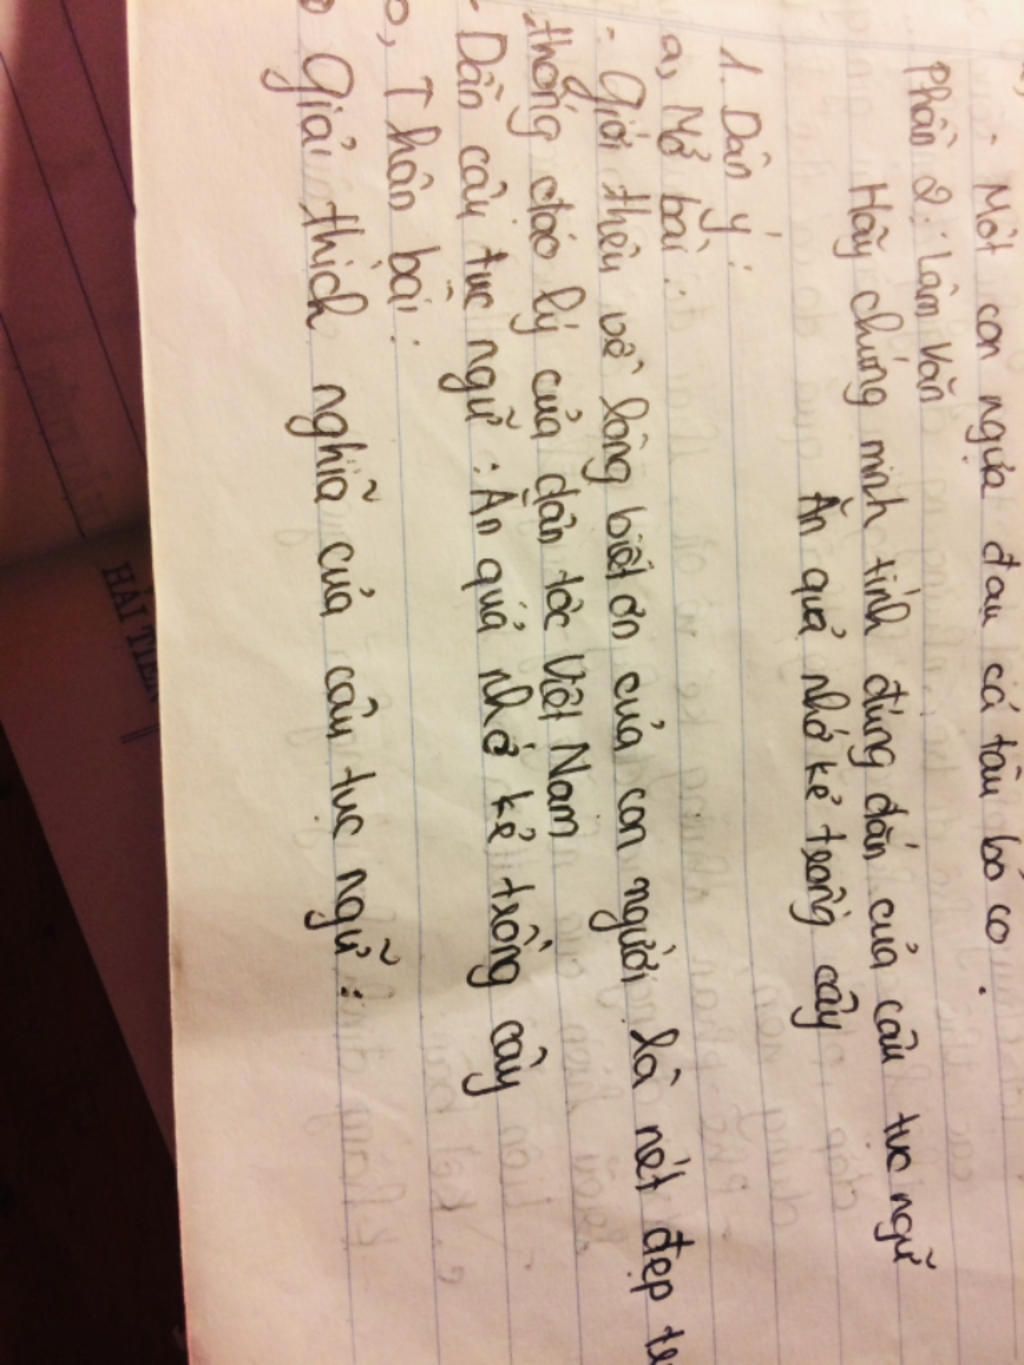 - Một con ngựa đau cả tàu bỏ cỏ.
Phần 2: Làm Văn
Hãy chứng minh tính đúng đắn của câu tục ngữ
Ăn quả nhớ kẻ trồng cây
1. Dàn ý:
a, Mở bài:
- Giới thiệu về lòng biết ơn của con người là nét đẹp
thống đạo lý của dân tộc Việt Nam
- Dẫn câu tục ngữ: Ăn quả nhớ kẻ trồng cây
b, Thân bài:
Giải thích nghĩa của câu tục ngữ:
HẢI TIẾN